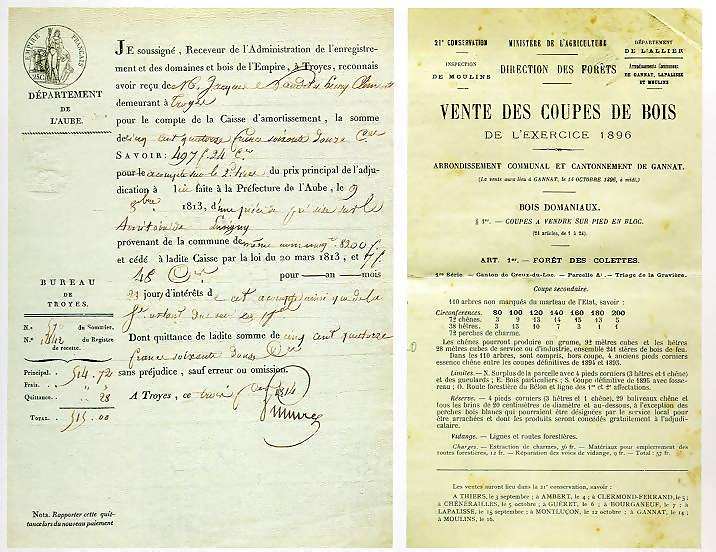 EMPIRE FRANÇAIS
25C
DÉPARTEMENT
DE
L'AUBE.
JE soussigné, Receveur de l'Administration de l'enregistre-
ment et des domaines et bois de l'Empire, à Troyes, reconnais
avoir reçu de M. Jacques
demeurant à Troyes
pour le compte de la Caisse d'amortissement, la somme
de cinq cent quatorze francs soixante douze Cmes
SAVOIR: 497 f. 24 C.
pour le acompte sur le 2e du prix principal de l'adju-
dication à lui faite à la Préfecture de l'Aube, le 9
xbre 1813, d'une pièce de pré sise sur le
territoire de
provenant de la commune de même 8200 f
et cédé à ladite Caisse par la loi du 20 mars 1813, et 17 f.
48 C pour — an — mois
21 jours d'intérêts de
Dont quittance de ladite somme de cinq cent quatorze
francs soixante douze C
sans préjudice, sauf erreur ou omission.
A Troyes, ce trois 1814
BUREAU
DE
TROYES.
N.° du Sommier.
N.° du Registre
de recette.
Principal. 514. 72
Frais. " "
Quittance. 28
TOTAL. 515. 00
Nota. Rapporter cette quit-
tance lors du nouveau paiement
21e CONSERVATION
MINISTÈRE DE L'AGRICULTURE
DÉPARTEMENT
DE L'ALLIER
INSPECTION
DE MOULINS
DIRECTION DES FORÊTS
Arrondissements Communaux
DE GANNAT, LAPALISSE
ET MOULINS
VENTE DES COUPES DE BOIS
DE L'EXERCICE 1896
ARRONDISSEMENT COMMUNAL ET CANTONNEMENT DE GANNAT.
(La vente aura lieu à GANNAT, le 14 OCTOBRE 1896, à midi.)
BOIS DOMANIAUX.
§ 1er. — COUPES A VENDRE SUR PIED EN BLOC.
(24 articles, de 1 à 24).
ART. 1er. — FORÊT DES COLETTES.
1re Série. — Canton de Creux-du-Loc. — Parcelle A1. — Triage de la Gravière.
Coupe secondaire.
110 arbres non marqués du marteau de l'Etat, savoir :
Circonférences. 80 100 120 140 160 180 200
72 chênes. 3 9 13 14 15 13 5
38 hêtres. 3 13 10 7 3 1 1
72 perches de charme.
Les chênes pourront produire en grume, 92 mètres cubes et les hêtres
28 mètres cubes de service ou d'industrie, ensemble 241 stères de bois de feu.
Dans les 110 arbres, sont compris, hors coupe, 4 anciens pieds corniers
essence chêne entre les coupes définitives de 1894 et 1893.
Limites. — N. Surplus de la parcelle avec 4 pieds corniers (3 hêtres et 1 chêne)
et des gueulards ; E. Bois particuliers ; S. Coupe définitive de 1895 avec fosse-
reau ; O. Route forestière du Bélon et ligne des 1re et 2e affectations.
Réserve. — 4 pieds corniers (3 hêtres et 1 chêne), 29 baliveaux chêne et
tous les brins de 20 centimètres de diamètre et au-dessous, à l'exception des
perches bois blancs qui pourraient être désignées par le service local pour
être arrachées et dont les produits seront concédés gratuitement à l'adjudi-
cataire.
Vidange. — Lignes et routes forestières.
Charges. — Extraction de charmes, 36 fr. — Matériaux pour empierrement des
routes forestières, 12 fr. — Réparation des voies de vidange, 9 fr. — Total : 57 fr.
Les ventes auront lieu dans la 21e conservation, savoir :
A THIERS, le 3 septembre ; à AMBERT, le 4 ; à CLERMOND-FERRAND, le 5 ;
à CHÉNÉRAILLES, le 5 octobre ; à GUÉRET, le 6 ; à BOURGANEUF, le 7 ; à
LAPALISSE, le 15 septembre ; à MONTLUÇON, le 12 octobre ; à GANNAT, le 14 ;
à MOULINS, le 16.